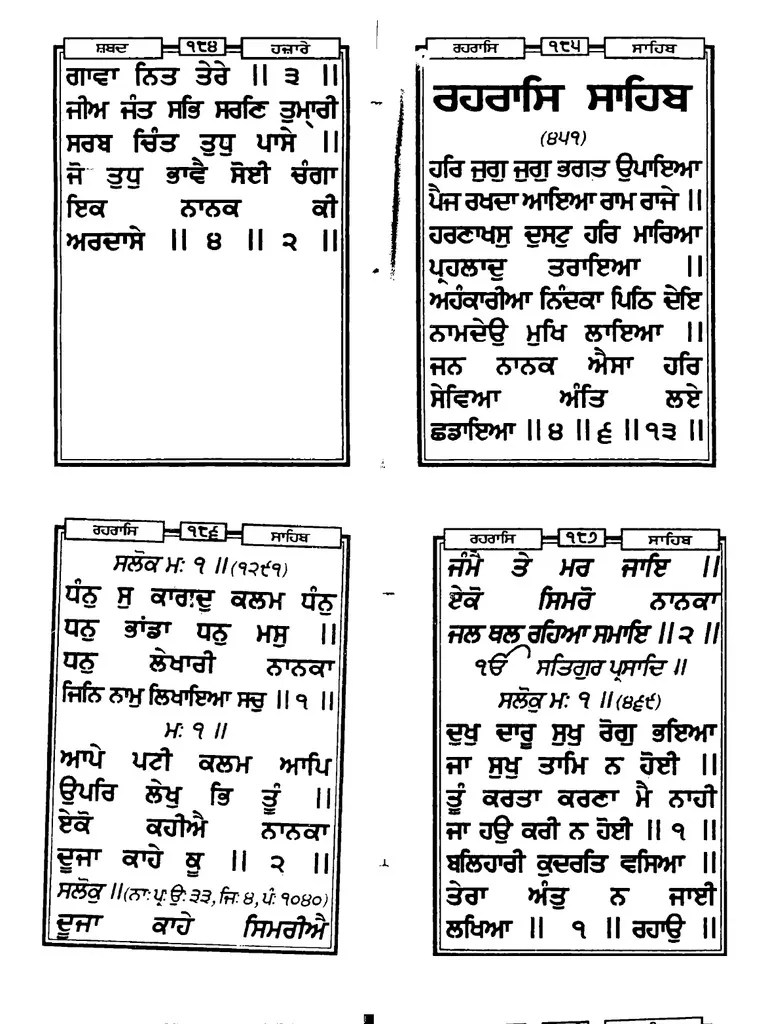 ਸ਼ਬਦ ੧੮੪ ਹਜ਼ਾਰੇ
ਗਾਵਾ ਨਿਤ ਤੇਰੇ ॥ ੩ ॥
ਜੀਅ ਜੰਤ ਸਭਿ ਸਰਣਿ ਤੁਮਾੑਰੀ
ਸਰਬ ਚਿੰਤ ਤੁਧੁ ਪਾਸੇ ॥
ਜੋ ਤੁਧੁ ਭਾਵੈ ਸੋਈ ਚੰਗਾ
ਇਕ ਨਾਨਕ ਕੀ
ਅਰਦਾਸੇ ॥ ੪ ॥ ੨ ॥
ਰਹਰਾਸਿ ੧੮੫ ਸਾਹਿਬ
ਰਹਰਾਸਿ ਸਾਹਿਬ
(੪੫੧)
ਹਰਿ ਜੁਗੁ ਜੁਗੁ ਭਗਤ ਉਪਾਇਆ
ਪੈਜ ਰਖਦਾ ਆਇਆ ਰਾਮ ਰਾਜੇ ॥
ਹਰਣਾਖਸੁ ਦੁਸਟੁ ਹਰਿ ਮਾਰਿਆ
ਪ੍ਰਹਲਾਦੁ ਤਰਾਇਆ ॥
ਅਹੰਕਾਰੀਆ ਨਿੰਦਕਾ ਪਿਠਿ ਦੇਇ
ਨਾਮਦੇਉ ਮੁਖਿ ਲਾਇਆ ॥
ਜਨ ਨਾਨਕ ਐਸਾ ਹਰਿ
ਸੇਵਿਆ ਅੰਤਿ ਲਏ
ਛਡਾਇਆ ॥ ੪ ॥ ੬ ॥ ੧੩ ॥
ਰਹਰਾਸਿ ੧੮੬ ਸਾਹਿਬ
ਸਲੋਕ ਮਃ ੧ ॥ (੧੨੯੧)
ਧੰਨੁ ਸੁ ਕਾਗਦੁ ਕਲਮ ਧੰਨੁ
ਧਨੁ ਭਾਂਡਾ ਧਨੁ ਮਸੁ ॥
ਧਨੁ ਲੇਖਾਰੀ ਨਾਨਕਾ
ਜਿਨਿ ਨਾਮੁ ਲਿਖਾਇਆ ਸਚੁ ॥ ੧ ॥
ਮਃ ੧ ॥
ਆਪੇ ਪਟੀ ਕਲਮ ਆਪਿ
ਉਪਰਿ ਲੇਖੁ ਭਿ ਤੂੰ ॥
ਏਕੋ ਕਹੀਐ ਨਾਨਕਾ
ਦੂਜਾ ਕਾਹੇ ਕੂ ॥ ੨ ॥
ਸਲੋਕੁ ॥ (ਨਾ: ਪ੍ਰ: ਉ: ੩੩, ਜਿ: ੪, ਪੰ: ੧੦੪੦)
ਦੂਜਾ ਕਾਹੇ ਸਿਮਰੀਐ
ਰਹਰਾਸਿ ੧੮੭ ਸਾਹਿਬ
ਜੰਮੈ ਤੇ ਮਰ ਜਾਇ ॥
ਏਕੋ ਸਿਮਰੋ ਨਾਨਕਾ
ਜਲ ਥਲ ਰਹਿਆ ਸਮਾਇ ॥ ੨ ॥
ੴ ਸਤਿਗੁਰ ਪ੍ਰਸਾਦਿ ॥
ਸਲੋਕੁ ਮਃ ੧ ॥ (੪੬੯)
ਦੁਖੁ ਦਾਰੂ ਸੁਖੁ ਰੋਗੁ ਭਇਆ
ਜਾ ਸੁਖੁ ਤਾਮਿ ਨ ਹੋਈ ॥
ਤੂੰ ਕਰਤਾ ਕਰਣਾ ਮੈ ਨਾਹੀ
ਜਾ ਹਉ ਕਰੀ ਨ ਹੋਈ ॥ ੧ ॥
ਬਲਿਹਾਰੀ ਕੁਦਰਤਿ ਵਸਿਆ ॥
ਤੇਰਾ ਅੰਤੁ ਨ ਜਾਈ
ਲਖਿਆ ॥ ੧ ॥ ਰਹਾਉ ॥